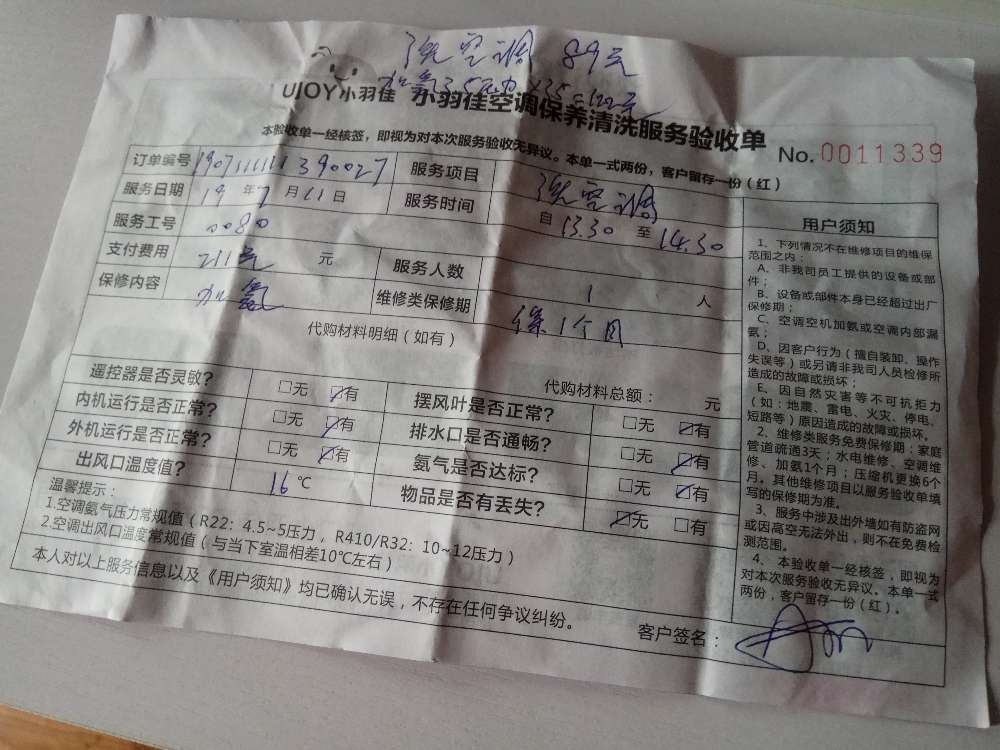 洗空调 89元
加氨3.5压力×35=122元
UJOY小羽佳 小羽佳空调保养清洗服务验收单
本验收单一经核签，即视为对本次服务验收无异议。本单一式两份，客户留存一份（红）
No. 0011339
订单编号 服务项目 洗空调
服务日期 19年7月11日 服务时间 自13.30至14.30
服务工号 0080
支付费用 211元 元 服务人数 1 人
保修内容 加氨 维修类保修期 保1个月
代购材料明细（如有）
代购材料总额： 元
遥控器是否灵敏？ □无 ☑有 摆风叶是否正常？ □无 ☑有
内机运行是否正常？ □无 ☑有 排水口是否通畅？ □无 ☑有
外机运行是否正常？ □无 ☑有 氨气是否达标？ □无 ☑有
出风口温度值？ 16 ℃ 物品是否有丢失？ ☑无 □有
温馨提示：
1.空调氨气压力常规值（R22：4.5~5压力，R410/R32：10~12压力）
2.空调出风口温度常规值（与当下室温相差10℃左右）
本人对以上服务信息以及《用户须知》均已确认无误，不存在任何争议纠纷。
客户签名：
用户须知
1、下列情况不在维修项目的维保
范围之内：
A、非我司员工提供的设备或部
件；
B、设备或部件本身已经超过出厂
保修期；
C、空调空机加氨或空调内部漏
氨；
D、因客户行为（擅自装卸、操作
失误等）或另请非我司人员检修所
造成的故障或损坏；
E、因自然灾害等不可抗拒力
（如：地震、雷电、火灾、停电、
短路等）原因造成的故障或损坏。
2、维修类服务免费保修期：家庭
管道疏通3天；水电维修、空调维
修、加氨1个月；压缩机更换6个
月。其他维修项目以服务验收单填
写的保修期为准。
3、服务中涉及出外墙如有防盗网
或因高空无法外出，则不在免费检
测范围。
4、本验收单一经核签，即视为
对本次服务验收无异议。本单一式
两份，客户留存一份（红）。